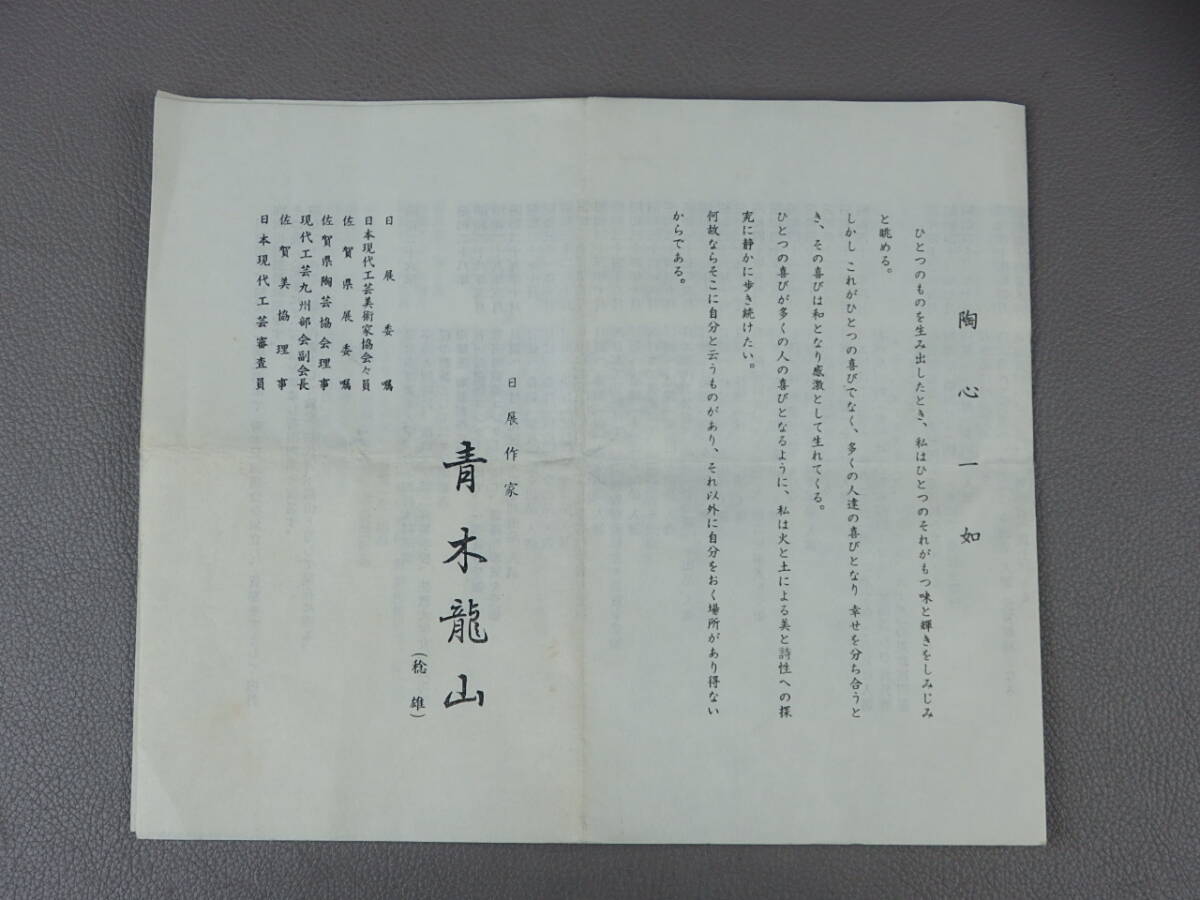 陶心一如
ひとつのものを生み出したとき、私はひとつのそれがもつ味と輝きをしみじみ
と眺める。
しかし これがひとつの喜びでなく、多くの人達の喜びとなり 幸せを分ち合うと
き、その喜びは和となり感激として生れてくる。
ひとつの喜びが多くの人の喜びとなるように、私は火と土による美と詩性への探
究に静かに歩き続けたい。
何故ならそこに自分と云うものがあり、それ以外に自分をおく場所があり得ない
からである。
日展作家
青木龍山
(稔雄)
日展委嘱
日本現代工芸美術家協会々員
佐賀県展委嘱
佐賀県陶芸協会理事
現代工芸九州部会副会長
佐賀美協理事
日本現代工芸審査員